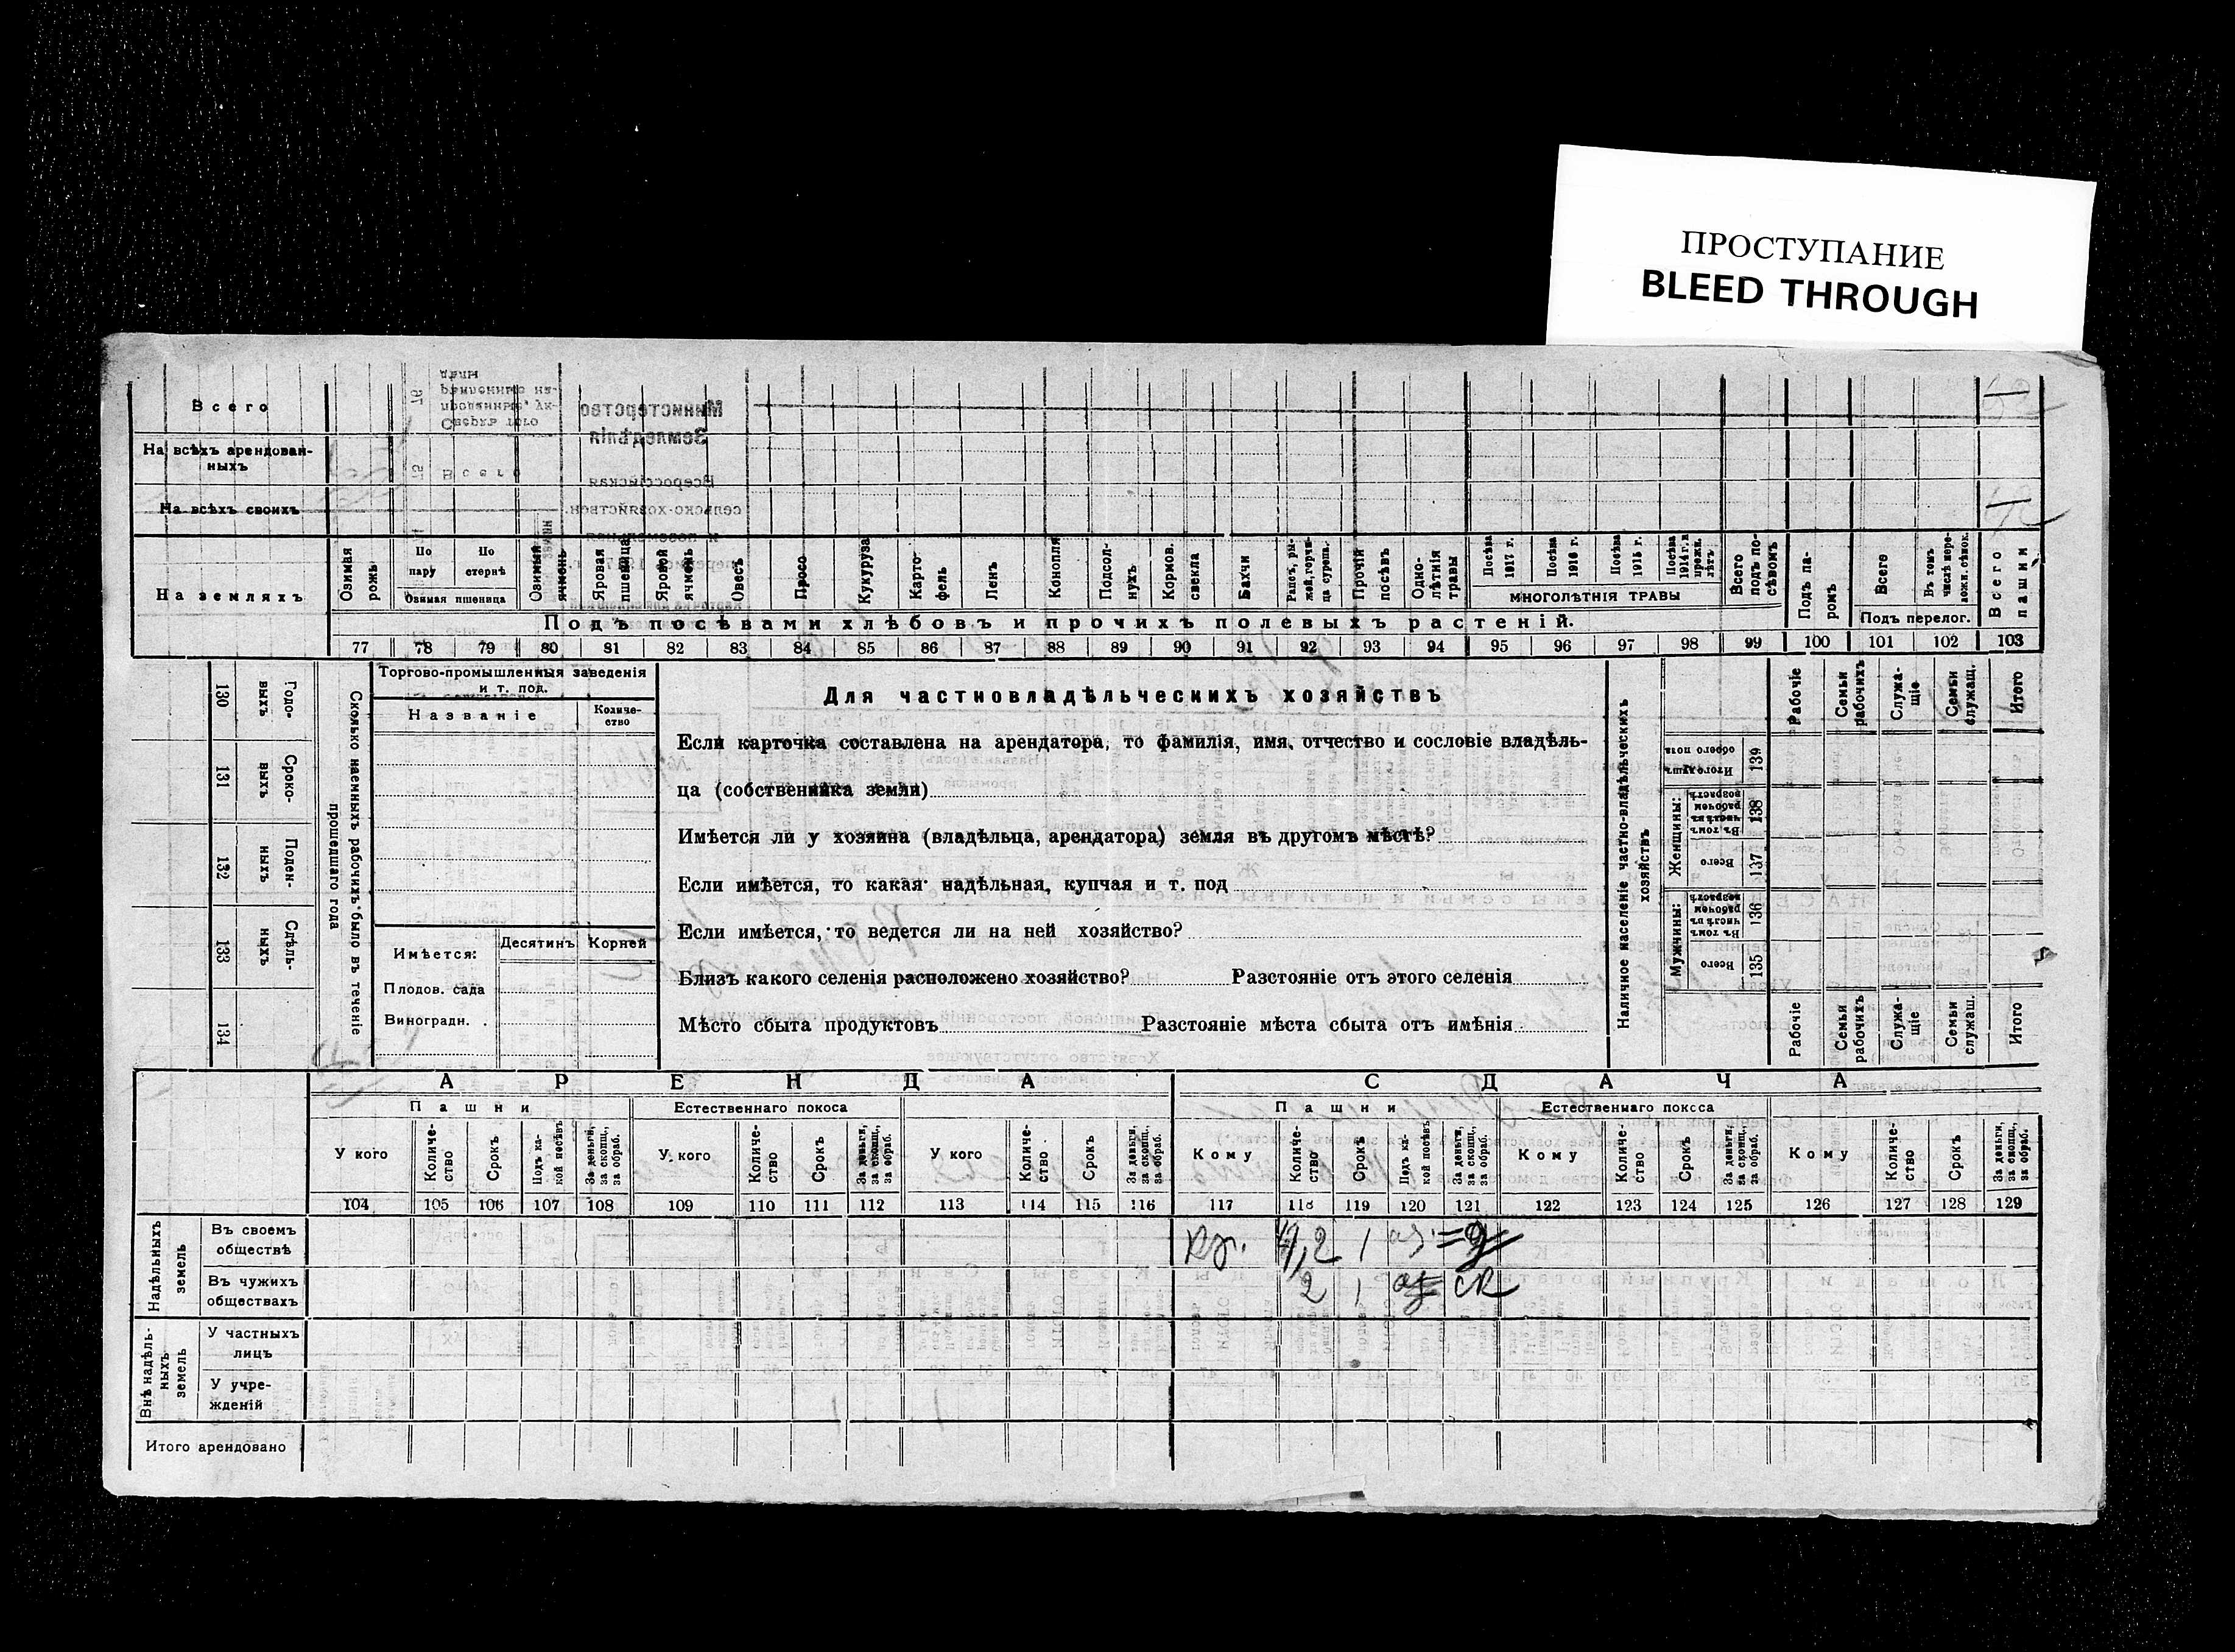 ПРОСТУПАНИЕ
BLEED THROUGH
Всего
На всѣхъ арендован-
ныхъ
На всѣхъ своихъ
На земляхъ
Озимая рожь
По пару
По стернѣ
Озимая пшеница
Озимый ячмень
Яровая пшеница
Яровой ячмень
Овесъ
Просо
Кукуруза
Карто-
фель
Ленъ
Конопля
Подсол-
нухъ
Кормов. свекла
Бахчи
Рапсъ, ры-
жей, горчи-
ца сурепа.
Прочій посѣвъ
Одно-
лѣтнія травы
Посѣва 1917 г.
Посѣва 1916 г.
Посѣва 1915 г.
Посѣва 1914 г. и прежн. лѣтъ
МНОГОЛѢТНІЯ ТРАВЫ
Всего подъ по-
сѣвомъ
Подъ па-
ромъ
Всего
Въ томъ числѣ пере-
лож. сѣнок.
Подъ перелог.
Всего пашни
Подъ посѣвами хлѣбовъ и прочихъ полевыхъ растеній.
77 78 79 80 81 82 83 84 85 86 87 88 89 90 91 92 93 94 95 96 97 98 99 100 101 102 103
130 Годо-
выхъ
131 Сроко-
выхъ
132 Поден-
ныхъ
133 Сдѣль-
ныхъ
134
Сколько наемныхъ рабочихъ было въ теченіе
прошедшаго года
Торгово-промышленныя заведенія
и т. под.
Названіе
Количе-
ство
Имѣется:
Десятинъ
Корней
Плодов. сада
Виноградн.
Для частновладѣльческихъ хозяйствъ
Если карточка составлена на арендатора, то фамилія, имя, отчество и сословіе владѣль-
ца (собственника земли)
Имѣется ли у хозяина (владѣльца, арендатора) земля въ другомъ мѣстѣ?
Если имѣется, то какая надѣльная, купчая и т. под
Если имѣется, то ведется ли на ней хозяйство?
Близъ какого селенія расположено хозяйство? Разстояніе отъ этого селенія
Мѣсто сбыта продуктовъ Разстояніе мѣста сбыта отъ имѣнія
Наличное населеніе частно-владѣльческихъ
хозяйствъ
Рабочіе
Семьи рабочихъ
Служа-
щіе
Семьи служащ.
Итого
Итого душъ обоего пола 139
Женщины:
Въ томъ числѣ въ рабочемъ возрастѣ 138
Всего 137
Мужчины:
Въ томъ числѣ въ рабочемъ возрастѣ 136
Всего 135
Рабочіе
Семьи рабочихъ
Служа-
щіе
Семьи служащ.
Итого
АРЕНДА
СДАЧА
Пашни
Естественнаго покоса
Пашни
Естественнаго покоса
У кого
Количе-
ство
Срокъ
Подъ ка-
кой посѣвъ
За деньги, за скопщ., за обраб.
У кого
Количе-
ство
Срокъ
За деньги, за скопщ., за обраб.
У кого
Количе-
ство
Срокъ
За деньги, за скопщ., за обраб.
Кому
Количе-
ство
Срокъ
Подъ ка-
кой посѣвъ
За деньги, за скопщ., за обраб.
Кому
Количе-
ство
Срокъ
За деньги, за скопщ., за обраб.
Кому
Количе-
ство
Срокъ
За деньги, за скопщ., за обраб.
104 105 106 107 108 109 110 111 112 113 114 115 116 117 118 119 120 121 122 123 124 125 126 127 128 129
Надѣльныхъ земель
Въ своемъ
обществѣ
2 1
Въ чужихъ
обществахъ
2 1 ск
Внѣ надѣль-
ныхъ земель
У частныхъ
лицъ
У учре-
жденій
Итого арендовано